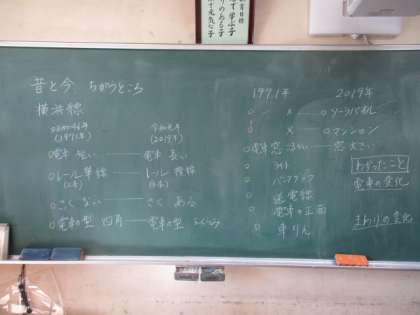 て学ぶ子
りのある子
で元気な子
昔と今 ちがうところ
横浜線
昭和46年 (1971年) 令和元年 (2019年)
電車 短い 電車 長い
レール 単線 レール 複線
さく ない さく ある
電車の型 四角
1971年 2019年
× ソーラーパネル
× マンション
窓 窓 大きい
ライト
パンタグラフ
送電線
電車の正面
車りん
わかったこと
電車の変化
まわりの変化